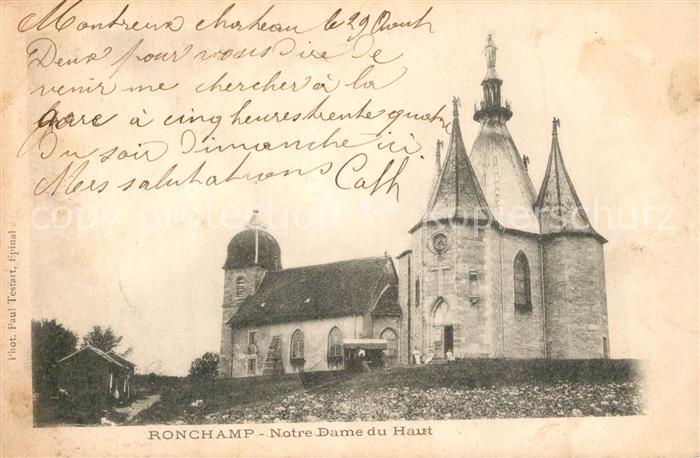 Montreux chateau le 29 Aout
Deux pour vous dire de
venir me chercher à la
gare à cinq heures trente quatre
Du soir Dimanche ici
Mes salutations Cath
copy protection copyrightschutz
Phot. Paul Testart, Epinal
RONCHAMP - Notre-Dame du Haut